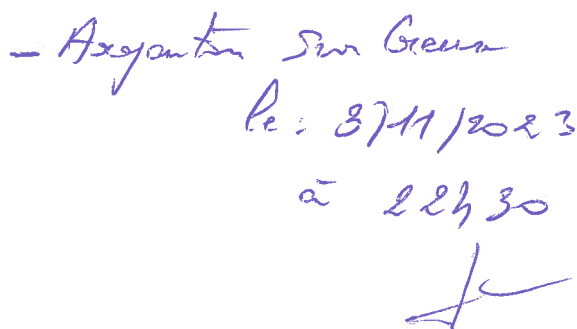 - Argenton Sur Creuse
le : 8/11/2023
à 22h30